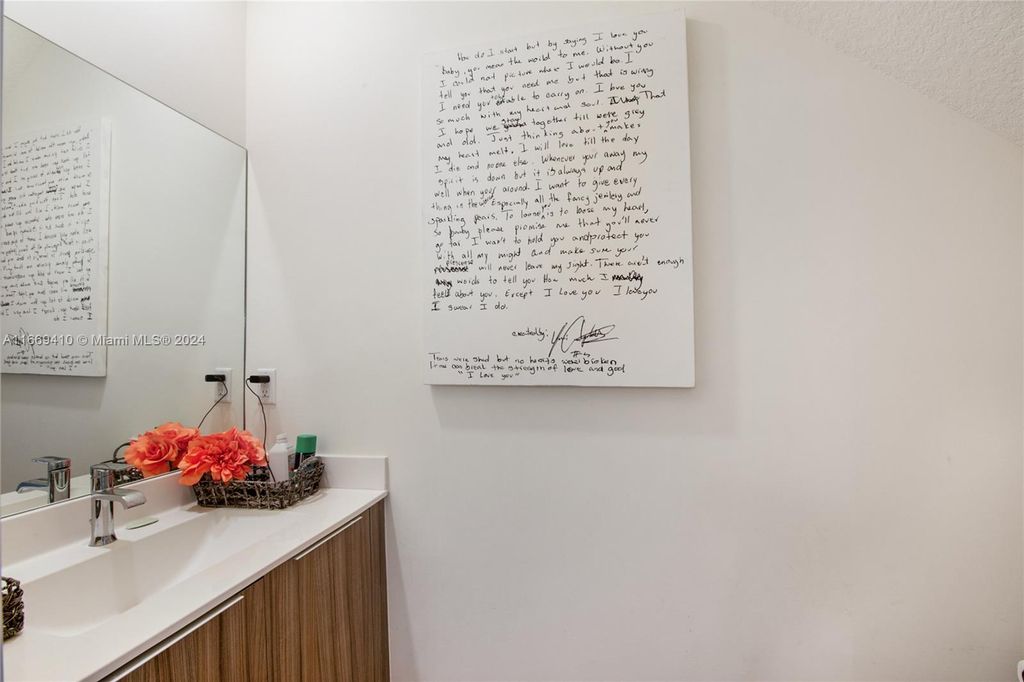 How do I start but by saying I love you
baby, you mean the world to me. Without you
I could not picture where I would be. I
tell you that you need me but that is wrong
I need you to be able to carry on. I love you
so much with my heart and soul. That
I hope we stay together till we're grey
and old. Just thinking about you makes
my heart melt. I will love till the day
I die and no one else. Whenever your away my
spirit is down but it is always up and
well when your around. I want to give every
thing in the world Especially all the fancy jewlery and
sparkling pearls. To loose you is to loose my heart,
so baby please promise me that you'll never
go far I want to hold you and protect you
with all my might and make sure your
prescense will never leave my sight. There ain't enough
words to tell you How much I
feel about you. Except I Love you I love you
I swear I do.
created by:
Tears were shed but no hearts were broken
break the strength of love and god
"I Love you"
A11669410 © Miami MLS® 2024